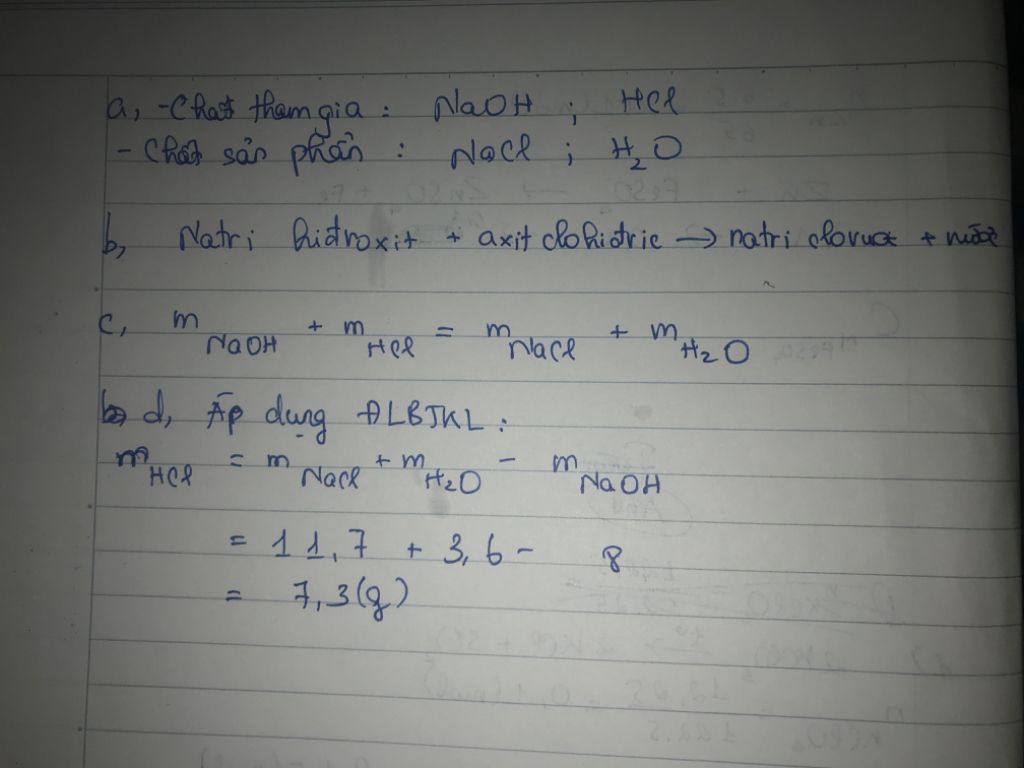 a, -Chất tham gia : NaOH ; HCl
- Chất sản phẩn : NaCl ; H₂O
b, Natri hiđroxit + axit clohiđric → natri clorua + nước
c, m NaOH + m HCl = m NaCl + m H₂O
d, Áp dụng ĐLBTKL :
m HCl = m NaCl + m H₂O - m NaOH
= 11,7 + 3,6 - 8
= 7,3(g)